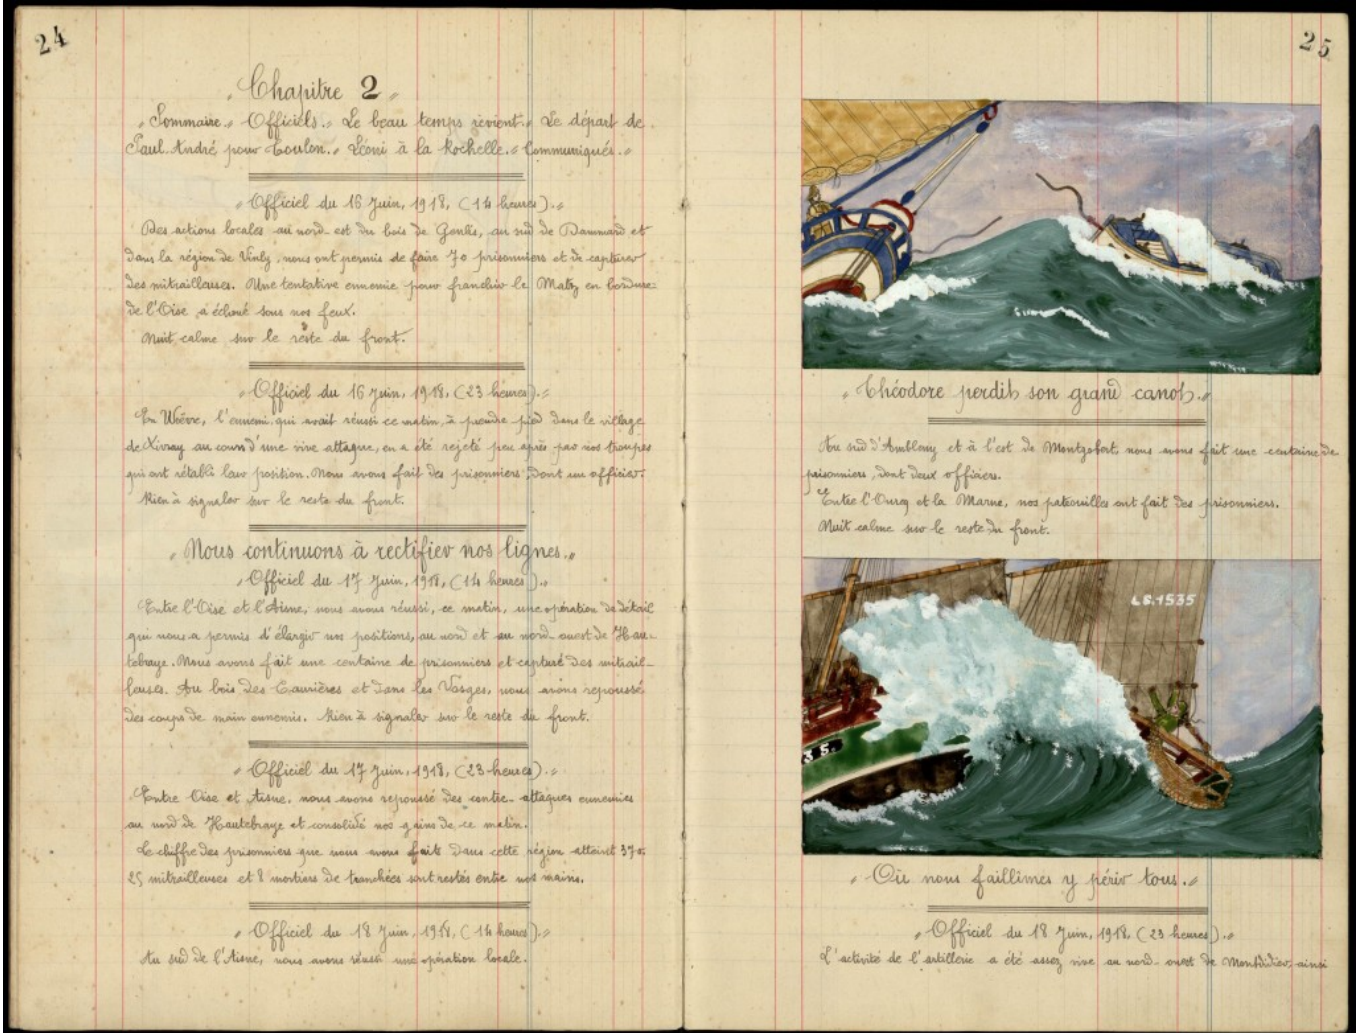 24
„ Chapitre 2 „
„ Sommaire. „ Officiels. „ Le beau temps revient. „ Le départ de
Paul André pour Toulon. „ Léoni à la Rochelle. „ Communiqués. „
„ Officiel du 16 Juin, 1918, (14 heures). „
Des actions locales au nord-est du bois de Genlis, au sud de Dammard et
dans la région de Vinly, nous ont permis de faire 70 prisonniers et de capturer
des mitrailleuses. Une tentative ennemie pour franchir le Matz en bordure
de l'Oise, a échoué sous nos feux.
Nuit calme sur le reste du front.
„ Officiel du 16 Juin, 1918, (23 heures). „
En Woëvre, l'ennemi, qui avait réussi ce matin, à prendre pied dans le village
de Xivray au cours d'une vive attaque, en a été rejeté peu après par nos troupes
qui ont rétabli leur position. Nous avons fait des prisonniers, dont un officier.
Rien à signaler sur le reste du front.
„ Nous continuons à rectifier nos lignes. „
„ Officiel du 17 Juin, 1918, (14 heures). „
Entre l'Oise et l'Aisne, nous avons réussi, ce matin, une opération de détail
qui nous a permis d'élargir nos positions, au nord et au nord-ouest de Hau-
tebraye. Nous avons fait une centaine de prisonniers et capturé des mitrail-
leuses. Au bois des Caurières et dans les Vosges, nous avons repoussé
des coups de main ennemis. Rien à signaler sur le reste du front.
„ Officiel du 17 Juin, 1918, (23 heures). „
Entre Oise et Aisne, nous avons repoussé des contre-attaques ennemies
au nord de Hautebraye et consolidé nos gains de ce matin.
Le chiffre des prisonniers que nous avons faits dans cette région atteint 370.
25 mitrailleuses et 8 mortiers de tranchées sont restés entre nos mains.
„ Officiel du 18 Juin, 1918, (14 heures). „
Au sud de l'Aisne, nous avons réussi une opération locale.
25
„ Théodore perdit son grand canot. „
Au sud d'Ambleny et à l'est de Montgobert, nous avons fait une centaine de
prisonniers, dont deux officiers.
Entre l'Ourcq et la Marne, nos patrouilles ont fait des prisonniers.
Nuit calme sur le reste du front.
LS.1535
35.
„ Où nous faillîmes y périr tous. „
„ Officiel du 18 Juin, 1918, (23 heures). „
L'activité de l'artillerie a été assez vive au nord-ouest de Montdidier, ainsi